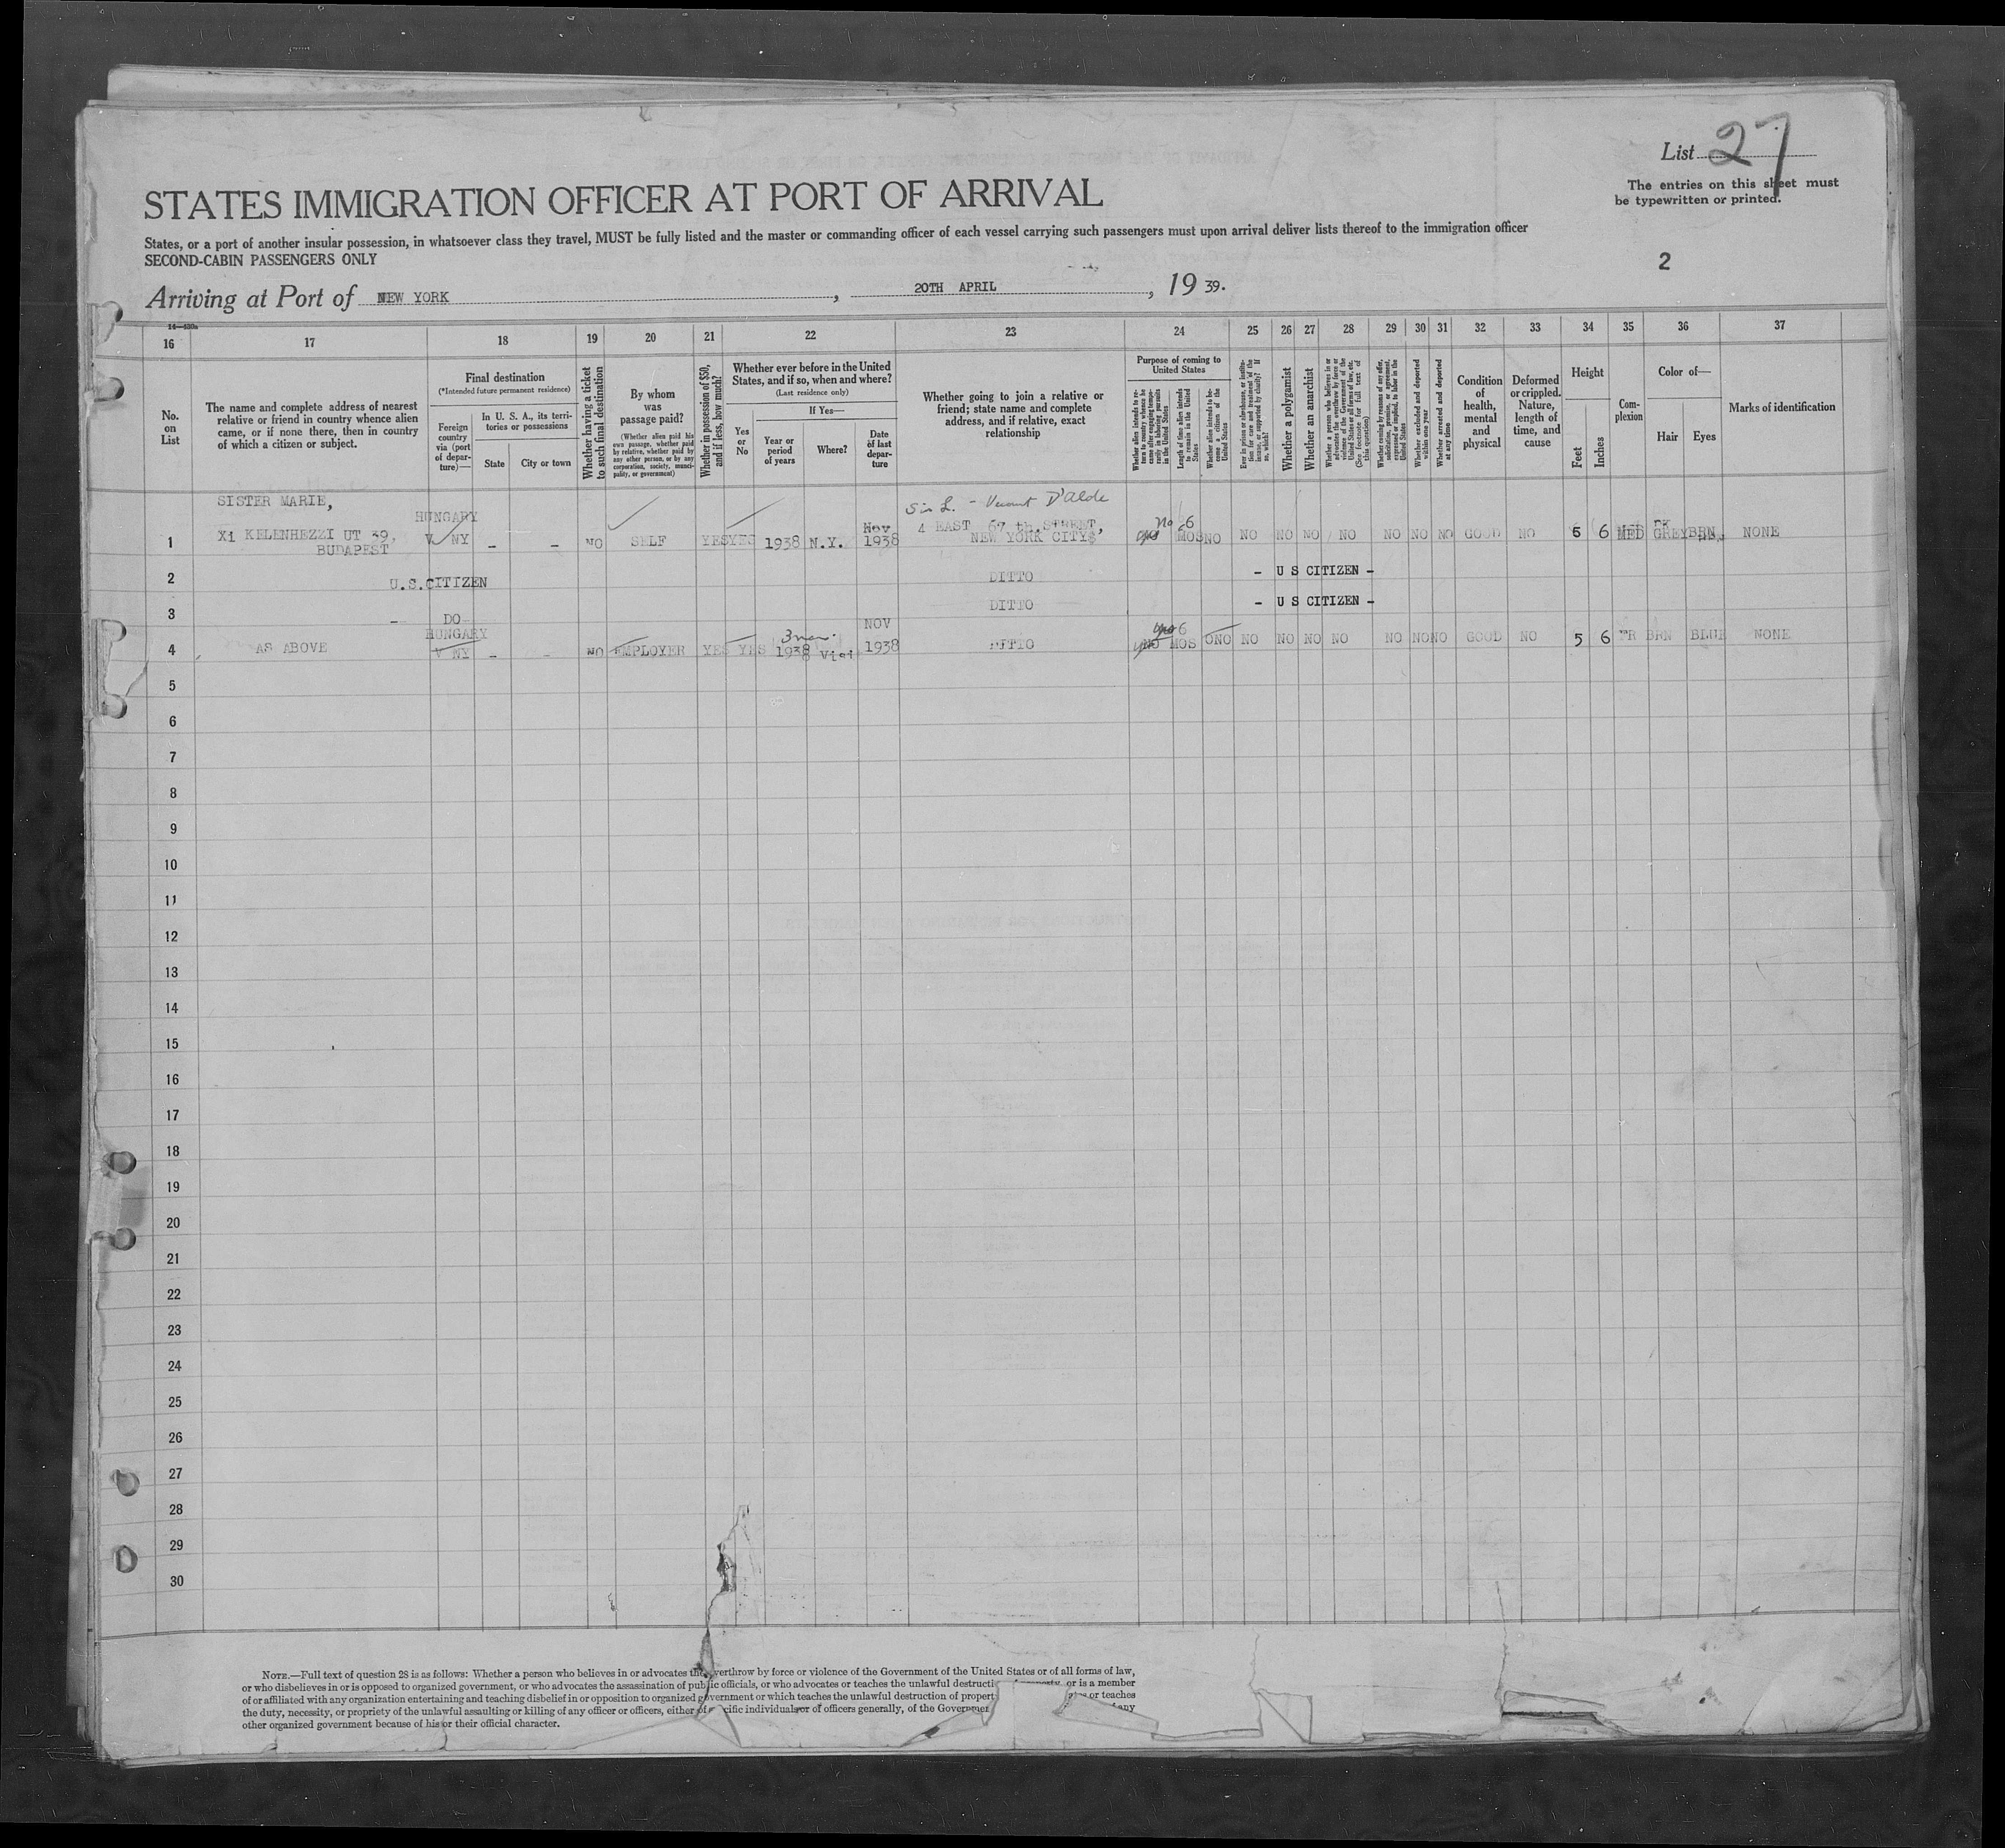 List 27
The entries on this sheet must
be typewritten or printed.
STATES IMMIGRATION OFFICER AT PORT OF ARRIVAL
States, or a port of another insular possession, in whatsoever class they travel, MUST be fully listed and the master or commanding officer of each vessel carrying such passengers must upon arrival deliver lists thereof to the immigration officer
SECOND-CABIN PASSENGERS ONLY
2
Arriving at Port of NEW YORK, 20TH APRIL, 19 39.
16 17 18 19 20 21 22 23 24 25 26 27 28 29 30 31 32 33 34 35 36 37
No.
on
List
The name and complete address of nearest
relative or friend in country whence alien
came, or if none there, then in country
of which a citizen or subject.
Final destination
(*Intended future permanent residence)
Foreign
country
via (port
of depar-
ture)—
In U. S. A., its terri-
tories or possessions
State
City or town
Whether having a ticket
to such final destination
By whom
was
passage paid?
(Whether alien paid his
own passage, whether paid
by relative, whether paid by
any other person, or by any
corporation, society, munici-
pality, or government)
Whether in possession of $50,
and if less, how much?
Whether ever before in the United
States, and if so, when and where?
(Last residence only)
Yes
or
No
If Yes—
Year or
period
of years
Where?
Date
of last
depar-
ture
Whether going to join a relative or
friend; state name and complete
address, and if relative, exact
relationship
Purpose of coming to
United States
Whether alien intends to re-
turn to country whence he
came after engaging tempo-
rarily in laboring pursuits
in the United States
Length of time alien intends
to remain in the United
States
Whether alien intends to be-
come a citizen of the
United States
Ever in prison or almshouse, or institu-
tion for care and treatment of the
insane, or supported by charity? If
so, which?
Whether a polygamist
Whether an anarchist
Whether a person who believes in or
advocates the overthrow by force or
violence of the Government of the
United States or all forms of law, etc.
(See footnote for full text of
this question)
Whether coming by reasons of any offer,
solicitation, promise, or agreement,
expressed or implied, to labor in the
United States
Whether excluded and deported
within one year
Whether arrested and deported
at any time
Condition
of
health,
mental
and
physical
Deformed
or crippled.
Nature,
length of
time, and
cause
Height
Feet
Inches
Com-
plexion
Color of—
Hair
Eyes
Marks of identification
SISTER MARIE,
HUNGARY
Nov
No 6
1 Xi KELENHEZZI UT 39, V NY - - NO SELF YES YES 1938 N.Y. 1938 4 EAST 67 th. STREET, MOS NO NO NO NO NO NO NO NO GOOD NO 5 6 MED GREY BRN NONE
BUDAPEST NEW YORK CITY
2 U.S.CITIZEN DITTO - U S CITIZEN -
3 - DO DITTO - U S CITIZEN -
HUNGARY NOV
4 AS ABOVE V NY - - NO EMPLOYER YES YES 1938 1938 DITTO MOS NO NO NO NO NO NO NO NO GOOD NO 5 6 FR BRN BLUE NONE
5
6
7
8
9
10
11
12
13
14
15
16
17
18
19
20
21
22
23
24
25
26
27
28
29
30
NOTE.—Full text of question 28 is as follows: Whether a person who believes in or advocates the overthrow by force or violence of the Government of the United States or of all forms of law,
or who disbelieves in or is opposed to organized government, or who advocates the assassination of public officials, or who advocates or teaches the unlawful destruction of property, or is a member
of or affiliated with any organization entertaining and teaching disbelief in or opposition to organized government or which teaches the unlawful destruction of property or teaches
the duty, necessity, or propriety of the unlawful assaulting or killing of any officer or officers, either of specific individuals or of officers generally, of the Government any
other organized government because of his or their official character.